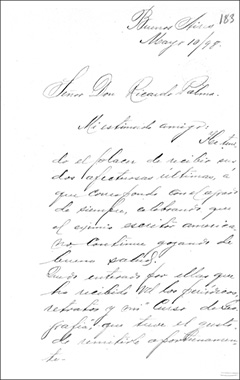 183
Buenos Aires
Mayo 10/98.
Señor Don Ricardo Palma.
Mi estimado amigo:
He teni
do el placer de recibir sus
dos afectuosas últimas, á
que correspondo con el
de siempre, celebrando que
el eximio escritor america
no continue gozando de
buena salud.
Quedo enterado por ellas que
ha recibido Vd los periódicos,
retratos y mi "Curso de
grafía", que tuve el gusto
de remitirle
te.